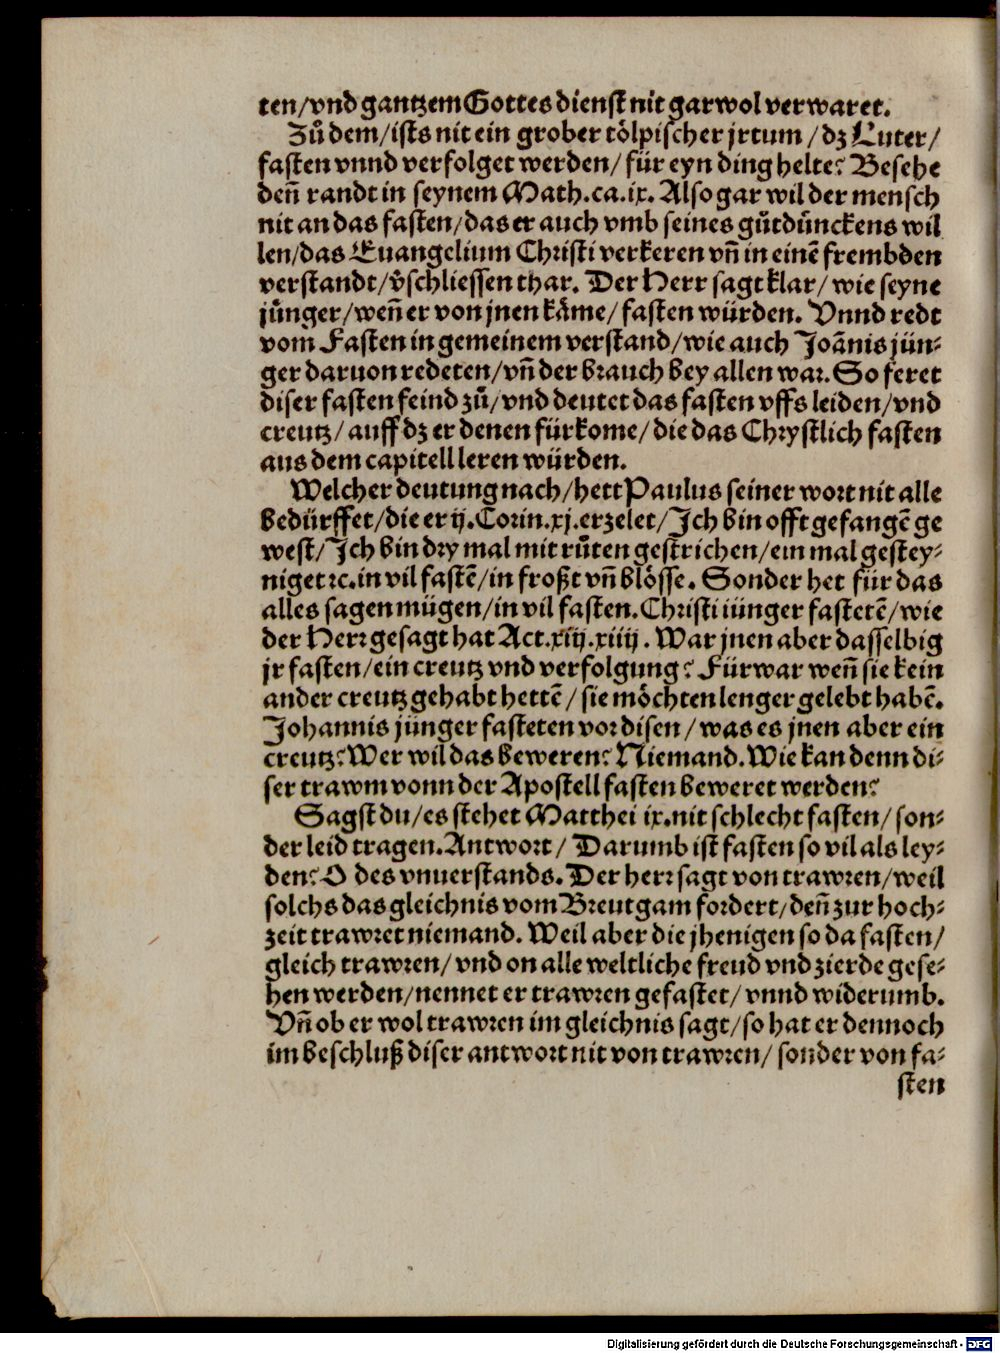 ten/vnd gantzem Gottes dienst nit gar wol verwaret.
Zů dem/ists nit ein grober tölpischer jrtum/dz Luter/
fasten vnnd verfolget werden/für eyn ding helte? Besehe
deñ randt in seynem Math.ca.ix. Also gar wil der mensch
nit an das fasten/das er auch vmb seines gůtdünckens wil
len/das Euangelium Christi verkeren vñ in einẽ frembden
verstandt/v̊schliessen thar. Der Herr sagt klar/wie seyne
jünger/weñ er von jnen käme/fasten würden. Vnnd redt
vom Fasten in gemeinem verstand/wie auch Joãnis jün⸗
ger daruon redeten/vñ der brauch bey allen war. So feret
diser fasten feind zů/vnd deutet das fasten vffs leiden/vnd
creutz/auff dz er denen fürkome/die das Chrystlich fasten
aus dem capitell leren würden.
Welcher deutung nach/hett Paulus seiner wort nit alle
bedürffet/die er ij.Corin.xj.erzelet/Ich bin offt gefangẽ ge
west/Ich bin dry mal mit růten gestrichen/ein mal gestey⸗
niget ꝛc.in vil fastẽ/in froßt vñ blösse. Sonder het für das
alles sagen mügen/in vil fasten.Christi iünger fastetẽ/wie
der Herr gesagt hat Act.xiij.xiiij. War jnen aber dasselbig
jr fasten/ein creutz vnd verfolgung? Fürwar weñ sie kein
ander creutz gehabt hettẽ/sie möchten lenger gelebt habẽ.
Johannis jünger fasteten vor disen/was es jnen aber ein
creutz? Wer wil das beweren? Niemand.Wie kan denn di⸗
ser trawm vonn der Apostell fasten beweret werden?
Sagst du/es stehet Matthei ix.nit schlecht fasten/son⸗
der leid tragen.Antwort/Darumb ist fasten so vil als ley⸗
den? O des vnuerstands. Der herr sagt von trawren/weil
solchs das gleichnis vom Breutgam fordert/deñ zur hoch⸗
zeit trawret niemand. Weil aber die jhenigen so da fasten/
gleich trawren/vnd on alle weltliche freud vnd zierde gese⸗
hen werden/nennet er trawren gefastet/vnnd widerumb.
Vñ ob er wol trawren im gleichnis sagt/so hat er dennoch
im beschluß diser antwort nit von trawren/sonder von fa⸗
sten
Digitalisierung gefördert durch die Deutsche Forschungsgemeinschaft - DFG